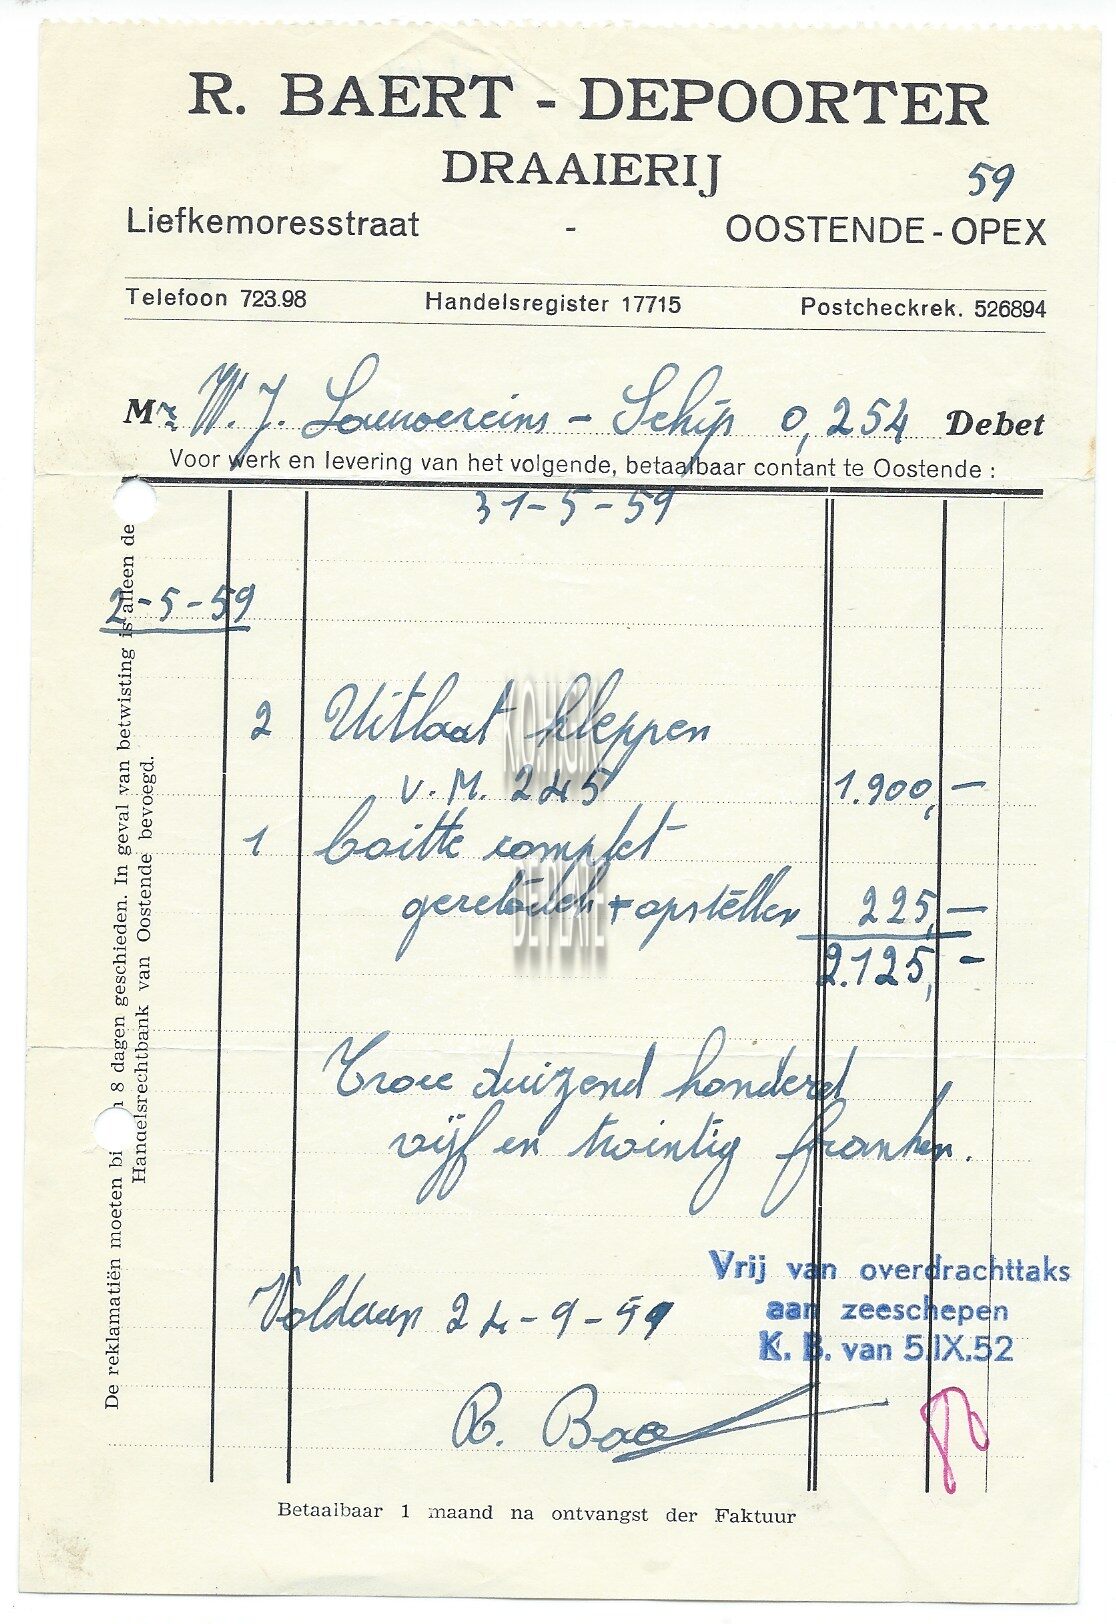 R. BAERT - DEPOORTER
DRAAIERIJ
59
Liefkemoresstraat - OOSTENDE - OPEX
Telefoon 723.98 Handelsregister 17715 Postcheckrek. 526894
Mr W. J. Louwereins - Schip O, 254 Debet
Voor werk en levering van het volgende, betaalbaar contant te Oostende :
31-5-59
2-5-59
2 Uitlaat kleppen
v. M. 245 1.900,-
1 Coitte complet
+ opstellen 225,-
2.125,-
Twee duizend honderd
vijf en twintig franken.
Vrij van overdrachttaks
aan zeeschepen
K. B. van 5.IX.52
Voldaan 24-9-59
R. Bae
Betaalbaar 1 maand na ontvangst der Faktuur
De reklamatiën moeten bi n 8 dagen geschieden. In geval van betwisting is alleen de
Handelsrechtbank van Oostende bevoegd.
DE PLATE